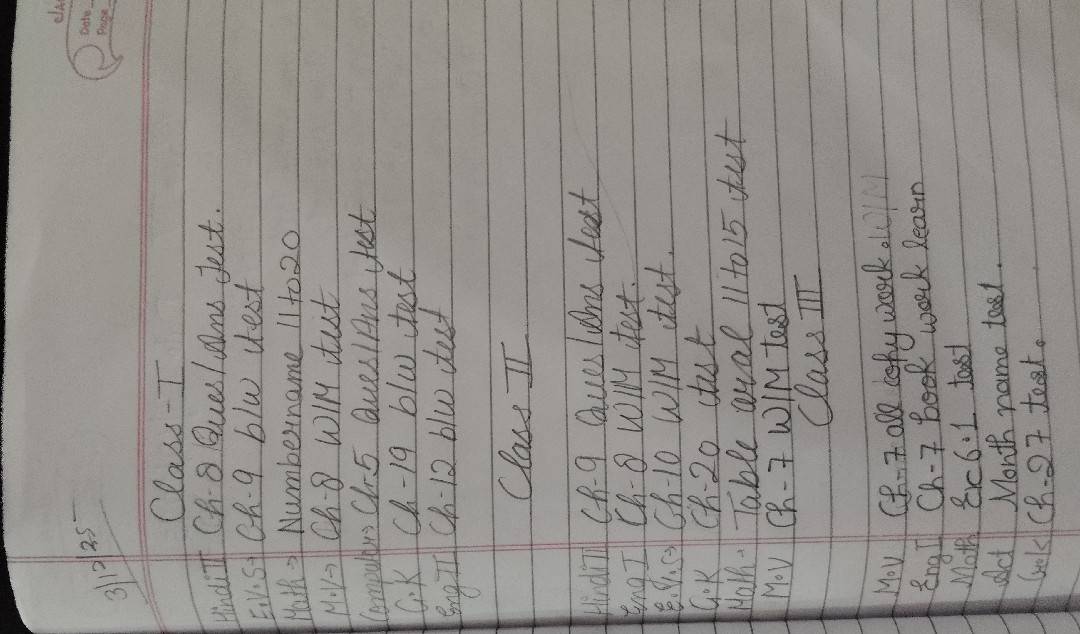 Date
Page
3/12/25
Class-I
Hindi II Ch-8 Ques/Ans Test.
E.V.S→ Ch-9 b/w test
Math→ Numbername 11 to 20
M.V→ Ch-8 W/M test
Computer→ Ch-5 Ques/Ans test
G.K Ch-19 b/w test
Eng II Ch-12 b/w test
Class II
Hindi II Ch-9 Ques/Ans test
Eng I Ch-8 W/M test.
E.V.S→ Ch-10 W/M test.
G.K Ch-20 test
Math→ Table oral 11 to 15 test
M.V Ch-7 W/M test
Class III
M.V Ch-7 all copy work W/M
Eng I Ch-7 book work learn
Math Ex 6.1 test
Act Month name test.
G.K Ch-27 test.